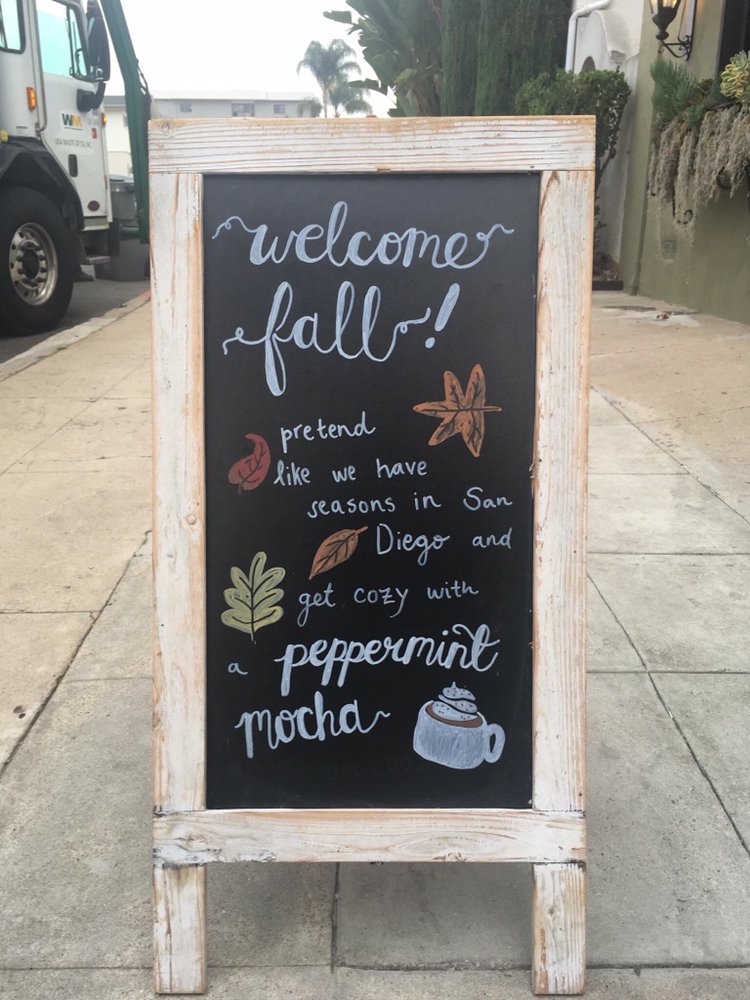 WM
welcome
fall!
pretend
like we have
seasons in San
Diego and
get cozy with
a peppermint
mocha